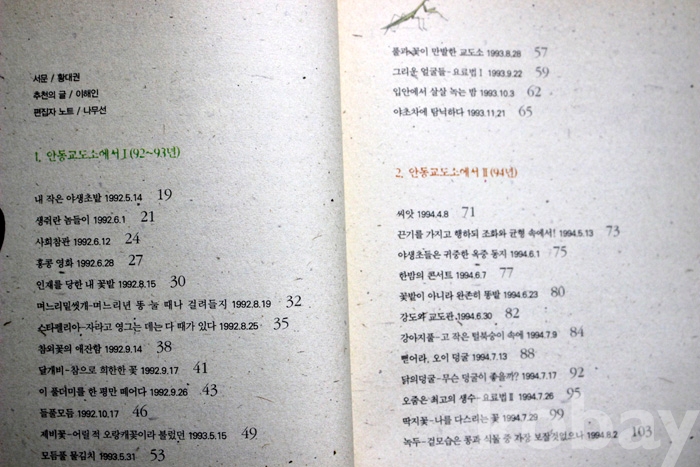 서문 / 황대권
추천의 글 / 이해인
편집자 노트 / 나무선
1. 안동교도소에서 I (92~93년)
내 작은 야생초밭 1992.5.14 19
생쥐란 놈들이 1992.6.1 21
사회참관 1992.6.12 24
홍콩 영화 1992.6.28 27
인재를 당한 내 꽃밭 1992.8.15 30
며느리밑씻개-며느리년 똥 눌 때나 걸려들지 1992.8.19 32
스타펠리아-자라고 영그는 데는 다 때가 있다 1992.8.25 35
참외꽃의 애잔함 1992.9.14 38
달개비-참으로 희한한 꽃 1992.9.17 41
이 풀더미를 한 평만 떼어다 1992.9.26 43
들풀모듬 1992.10.17 46
제비꽃-어릴 적 오랑캐꽃이라 불렀던 1993.5.15 49
모듬풀 물김치 1993.5.31 53
풀과 꽃이 만발한 교도소 1993.8.28 57
그리운 얼굴들-요료법 I 1993.9.22 59
입안에서 살살 녹는 밤 1993.10.3 62
야초차에 탐닉하다 1993.11.21 65
2. 안동교도소에서 II (94년)
씨앗 1994.4.8 71
끈기를 가지고 행하되 조화와 균형 속에서! 1994.5.13 73
야생초들은 귀중한 옥중 동지 1994.6.1 75
한밤의 콘서트 1994.6.7 77
꽃밭이 아니라 완존히 똥밭 1994.6.23 80
강도와 교도관 1994.6.30 82
강아지풀-고 작은 털북숭이 속에 1994.7.9 84
뻗어라, 오이 덩굴 1994.7.13 88
닭의덩굴-무슨 덩굴이 좋을까? 1994.7.17 92
오줌은 최고의 생수-요료법 II 1994.7.26 95
딱지꽃-나를 다스리는 꽃 1994.7.29 99
녹두-겉모습은 콩과 식물 중 가장 보잘것없으나 1994.8.2 103